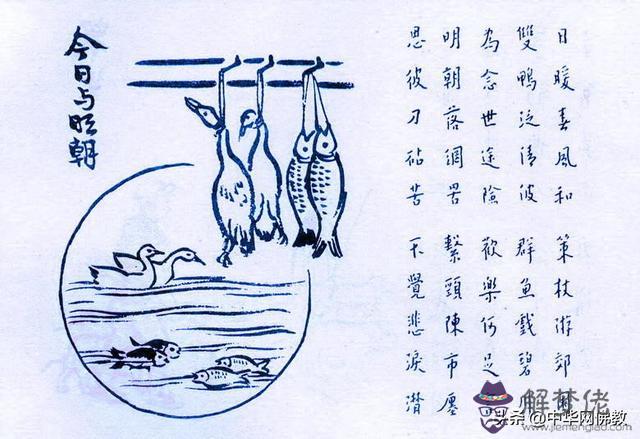 今日与明朝
日暖春風和 策杖游郊園
雙鴨泛清波 群魚戲碧川
為念世途險 歡樂何足
明朝落網罟 繫頭陳市廛
思彼刀砧苦 不覺悲淚潸
解梦佬
头条 @中华网佛教